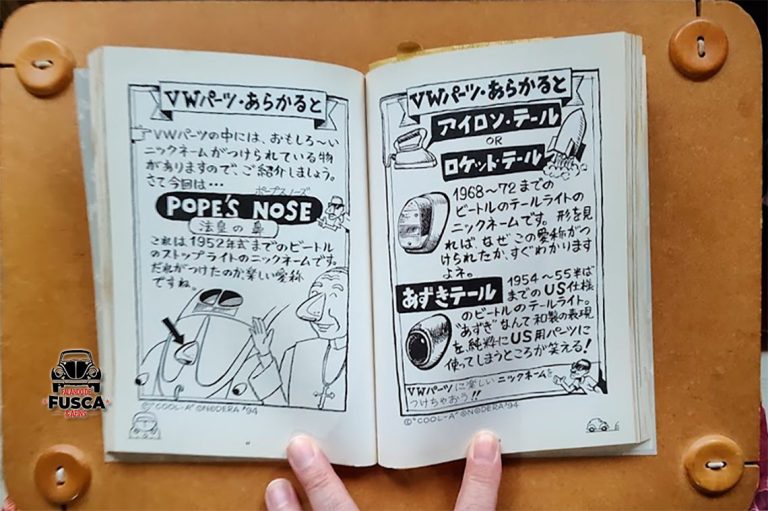 VWパーツ・あらかると
VWパーツの中には、おもしろ〜い
ニックネームがつけられている物
がありますので、ご紹介しましょう。
さて今回は…
ポープスノーズ
POPE'S NOSE
法皇の鼻
これは1952年式までのビートル
のストップライトのニックネームです。
だれがつけたのか楽しい愛称
ですね。
©"COOL-A" ©NODERA '94
VWパーツ・あらかると
アイロン・テール
OR
ロケット・テール
1968〜72までの
ビートルのテールライトの
ニックネームです。形を見
れば、なぜこの愛称がつ
けられたか、すぐわかります
よネ。
あずきテール
1954〜55半ば
までのUS仕様
のビートルのテールライト。
"あずき"なんて和製の表現
を、純粋にUS用パーツに
使ってしまうところが笑える!
VWパーツに楽しいニックネームを
つけちゃおう!!
©"COOL-A" ©NODERA '94
FUSCA